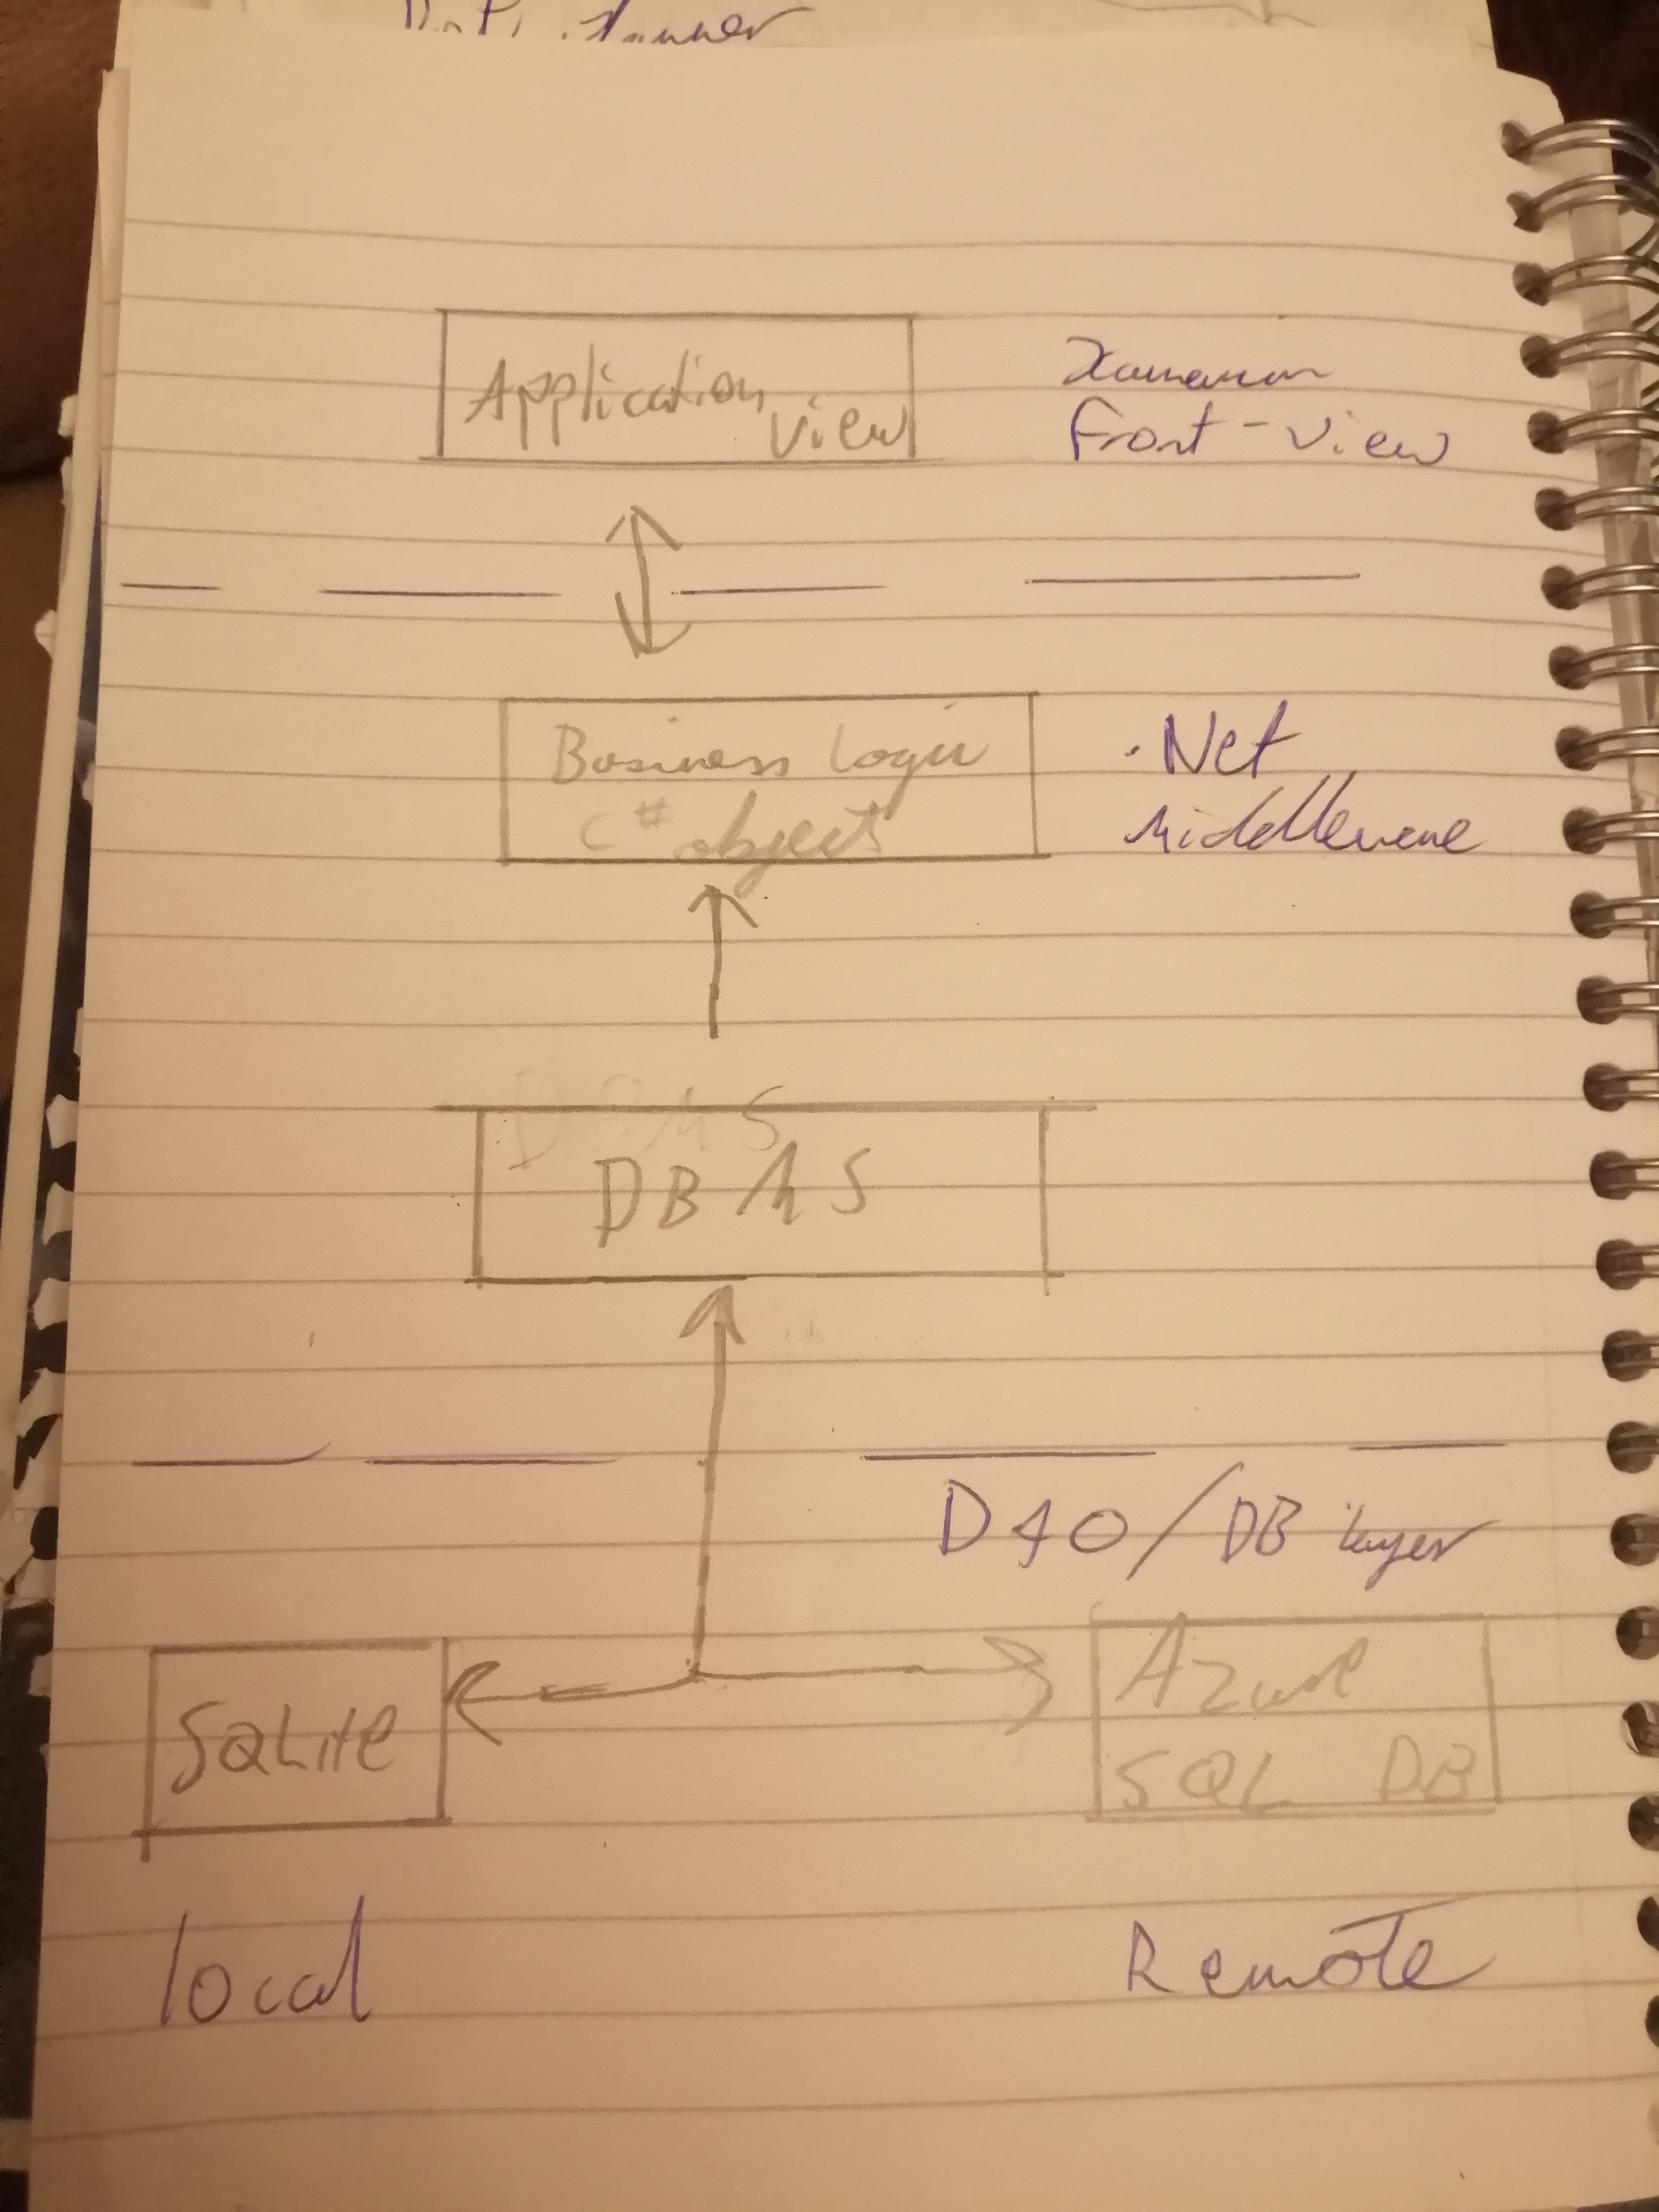 Application
view
Xamarin
Front-view
Business logic
C# object
.Net
Middleware
DBMS
DBMS
DAO/DB layer
SQLite
Azure
SQL DB
local
Remote